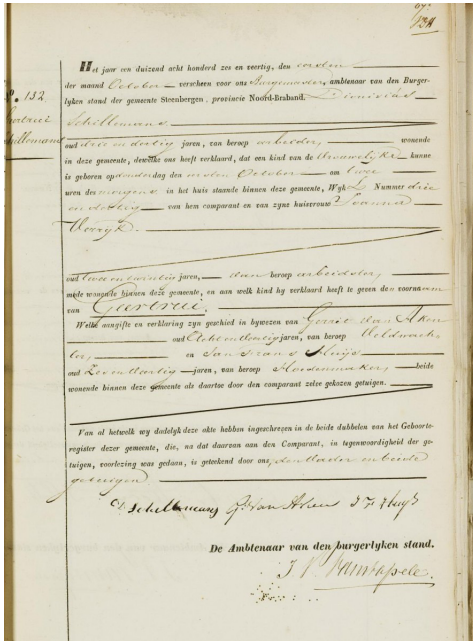 134
Het jaar een duizend acht honderd zes en veertig, den eersten
der maand October verscheen voor ons Burgemeester, ambtenaar van den Burger-
lyken stand der gemeente Steenbergen, provincie Noord-Braband, Dionisius
No. 132
Schellemans
Schellemans
oud drie en dertig jaren, van beroep arbeider, wonende
in deze gemeente, dewelke ons heeft verklaard, dat een kind van de Vrouwelyke kunne
is geboren op donderdag den eersten October om twee
uren des morgens in het huis staande binnen deze gemeente, Wyk L Nummer drie
en dertig van hem comparant en van zyne huisvrouw Joanna
Verryk.
oud twee en twintig jaren, van beroep arbeidster,
mede wonende binnen deze gemeente, en aan welk kind hy verklaard heeft te geven den voornaam
van Gartrui.
Welke aangifte en verklaring zyn geschied in bywezen van Gerrit van Aken
oud jaren, van beroep Veldwach-
ter, en Jan Frans Huijs
oud jaren, van beroep beide
wonende binnen deze gemeente als daartoe door den comparant zelve gekozen getuigen.
Van al hetwelk wy dadelyk deze akte hebben ingeschreven in de beide dubbelen van het Geboorte-
register dezer gemeente, die, na dat daarvan aan den Comparant, in tegenwoordigheid der ge-
tuigen, voorlezing was gedaan, is geteekend door ons, den Vader en beide
getuigen
D. Schellemans G. van Aken J F Huijs
De Ambtenaar van den burgerlyken stand.